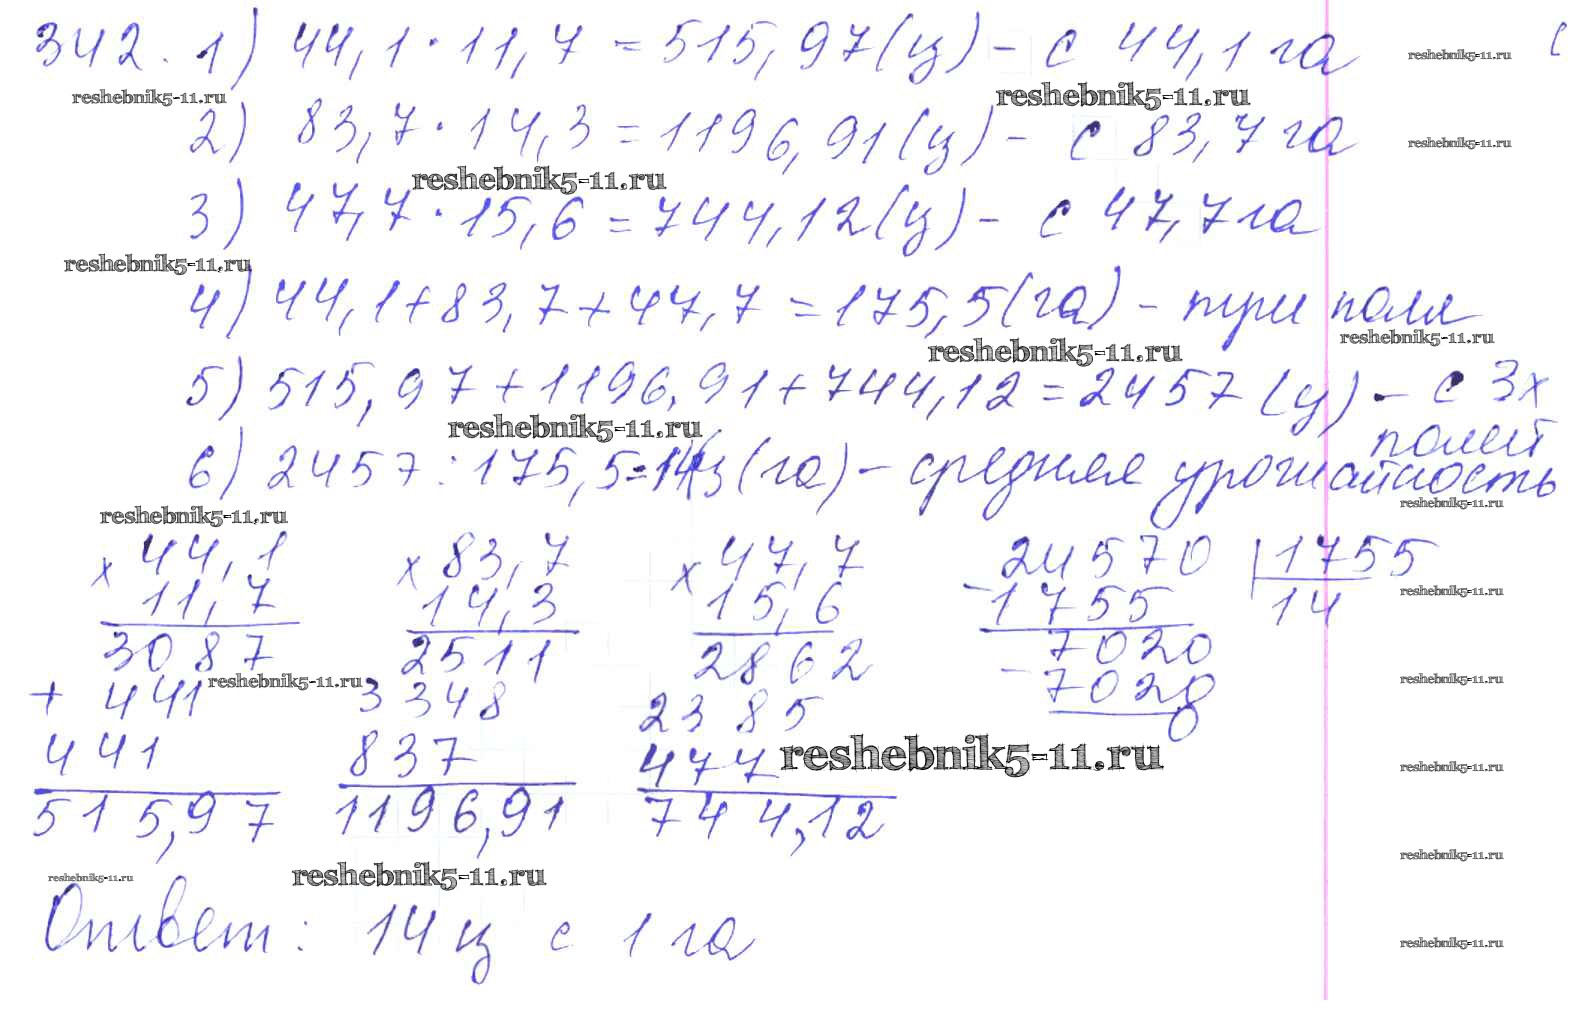 342. 1) 44,1 · 11,7 = 515,97 (ц) - с 44,1 га
reshebnik5-11.ru
reshebnik5-11.ru
reshebnik5-11.ru
2) 83,7 · 14,3 = 1196,91 (ц) - с 83,7 га
reshebnik5-11.ru
reshebnik5-11.ru
3) 47,7 · 15,6 = 744,12 (ц) - с 47,7 га
reshebnik5-11.ru
4) 44,1 + 83,7 + 47,7 = 175,5 (га) - три поля
reshebnik5-11.ru
reshebnik5-11.ru
5) 515,97 + 1196,91 + 744,12 = 2457 (ц) - с 3х
полей
reshebnik5-11.ru
6) 2457 : 175,5 = 14 (га) - средняя урожайность
reshebnik5-11.ru
reshebnik5-11.ru
× 44,1 × 83,7 × 47,7 24570 | 1755
11,7 14,3 15,6 - 1755 14
reshebnik5-11.ru
3087 2511 2862 7020
+ 441 3348 2385 - 7020
reshebnik5-11.ru
reshebnik5-11.ru
0
441 837 477
reshebnik5-11.ru
reshebnik5-11.ru
515,97 1196,91 744,12
reshebnik5-11.ru
reshebnik5-11.ru
reshebnik5-11.ru
Ответ: 14 ц с 1 га
reshebnik5-11.ru